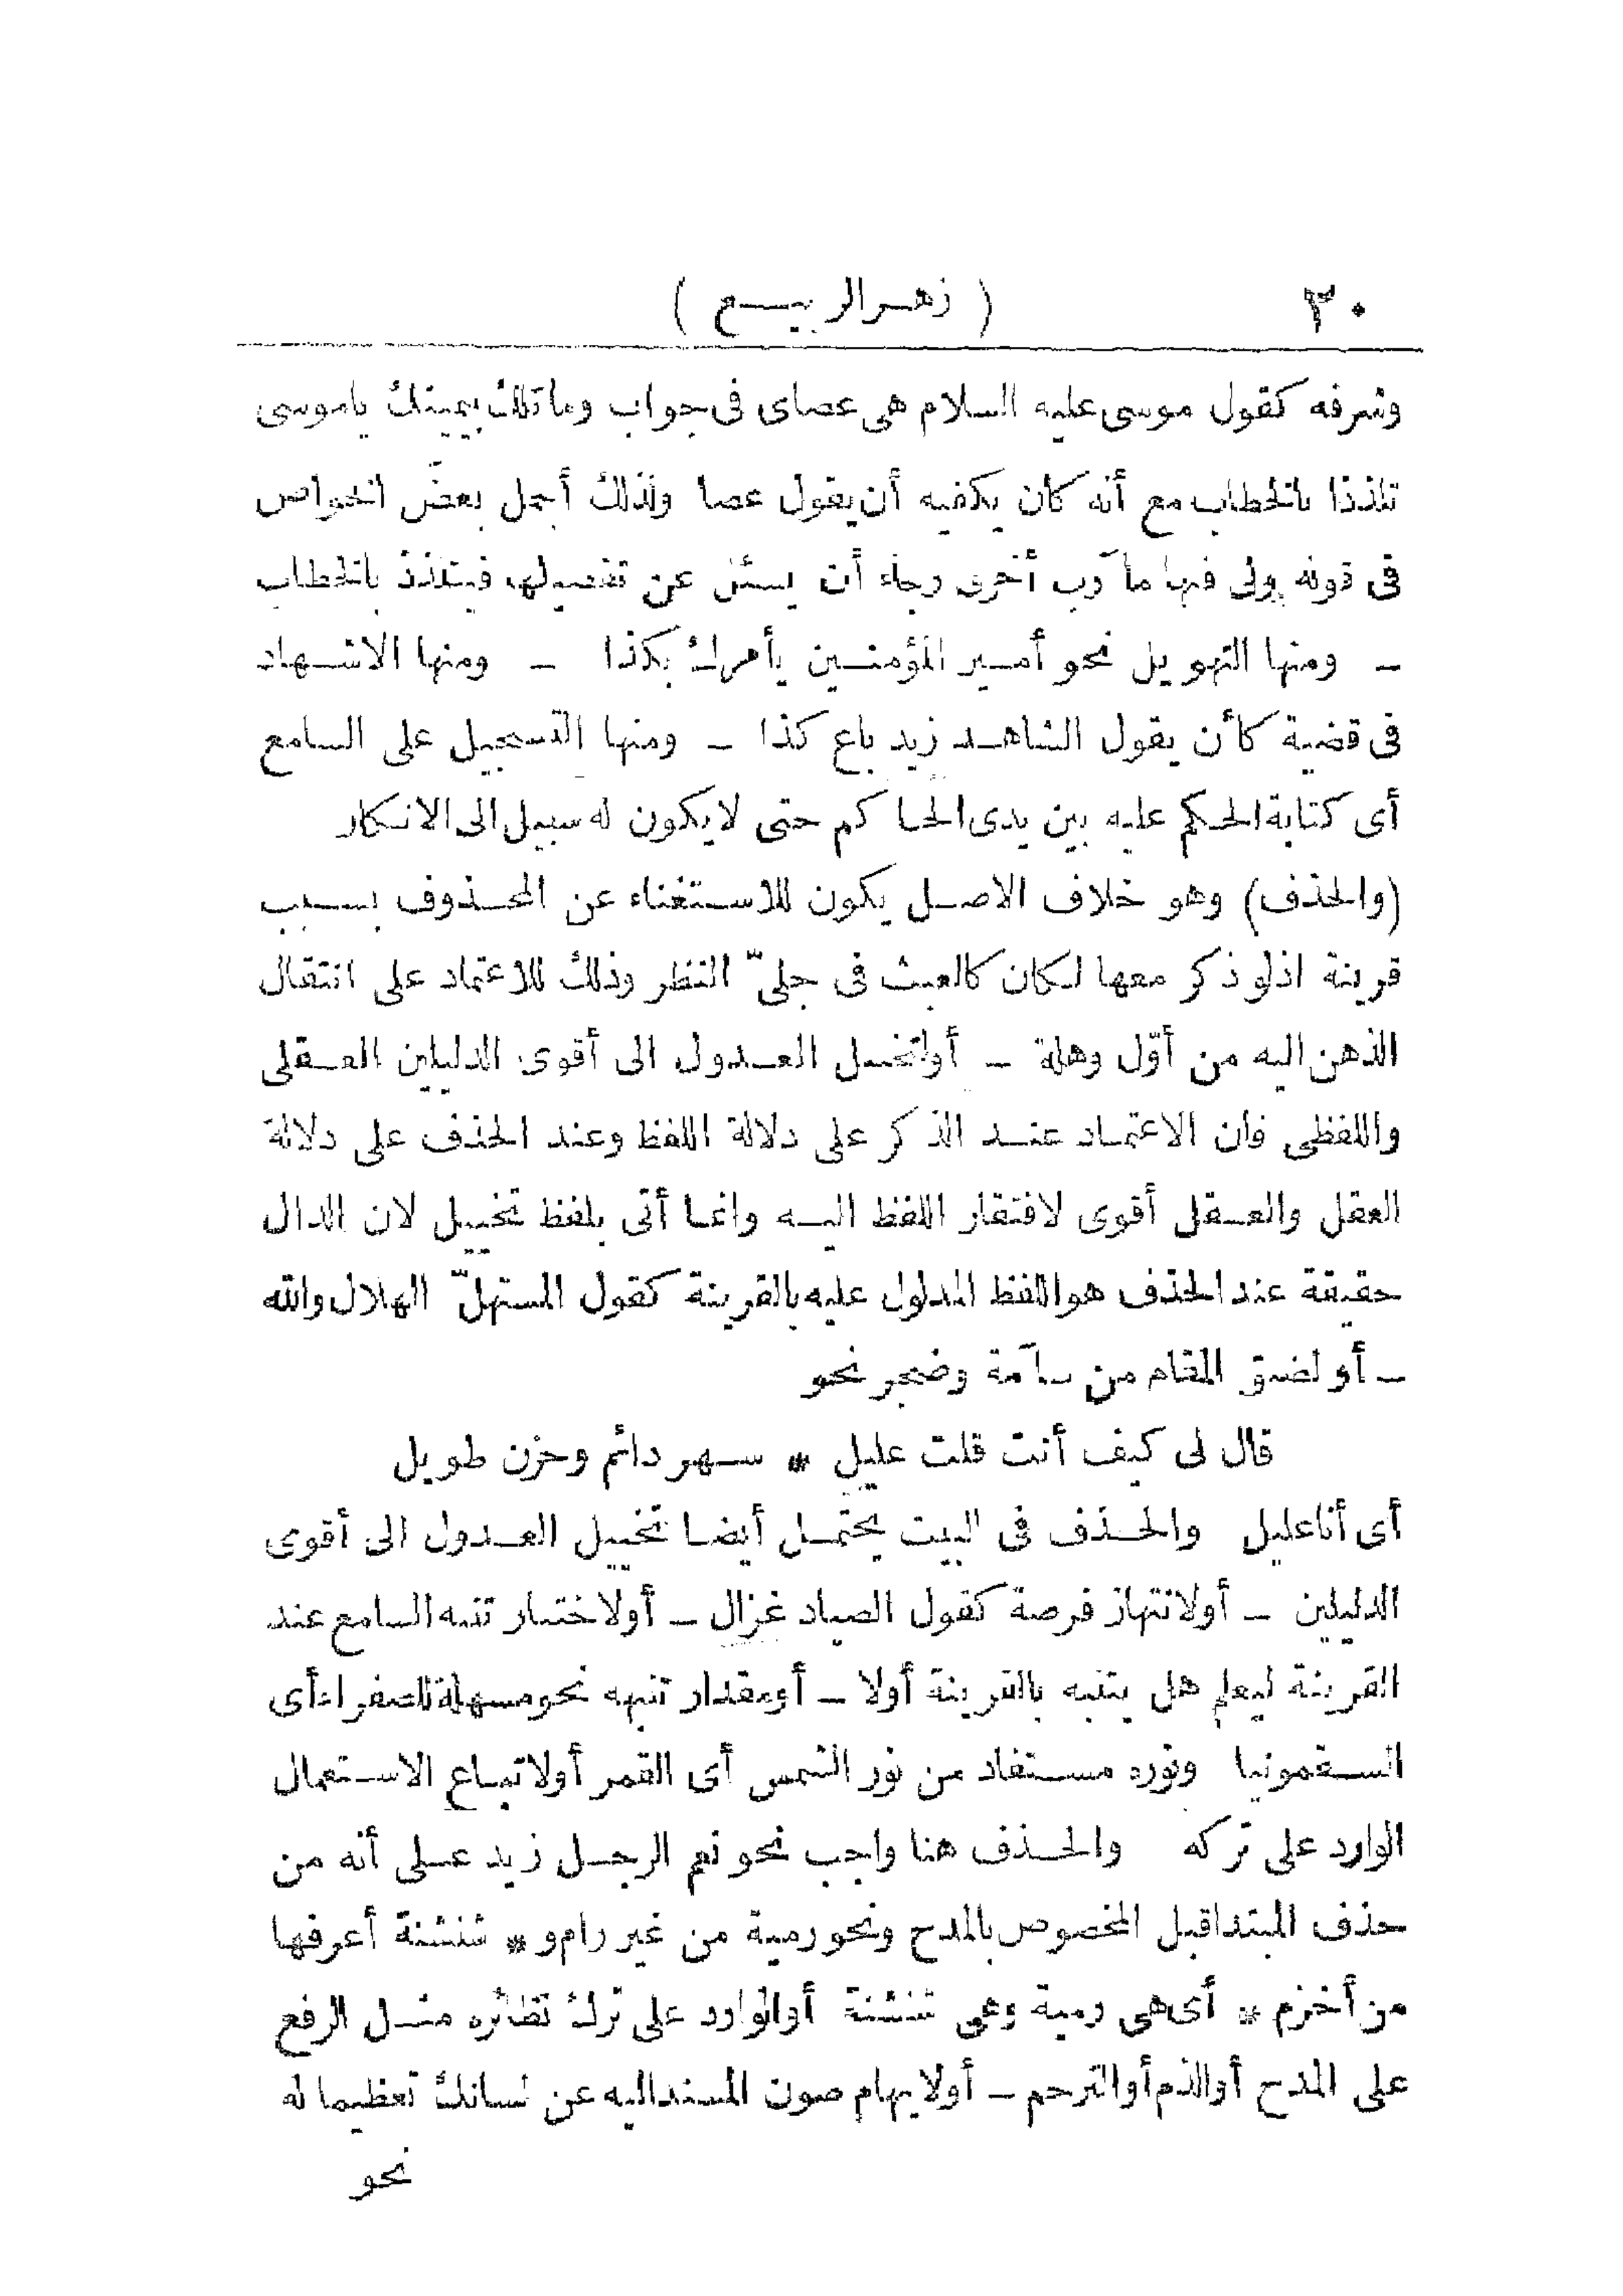 ٣٠ ( زهر الربيع )
وشرفه كقول موسى عليه السلام هى عصاى فى جواب وما تلك بيمينك ياموسى
تلذذا بالخطاب مع أنه كان يكفيه أن يقول عصا ولذلك أجمل بعض الخواص
فى قوله ولى فيها مآرب أخرى رجاء أن يسئل عن تفصيلها فيتلذذ بالخطاب
ـ ومنها التهويل نحو أمير المؤمنين يأمرك بكذا ـ ومنها الاشهاد
فى قضية كأن يقول الشاهد زيد باع كذا ـ ومنها التسجيل على السامع
أى كتابة الحكم عليه بين يدى الحاكم حتى لا يكون له سبيل الى الانكار
(والحذف) وهو خلاف الاصل يكون للاستغناء عن المحذوف بسبب
قرينة اذ لو ذكر معها لكان كالعبث فى جلىّ النظر وذلك للاعتماد على انتقال
الذهن اليه من أوّل وهلة ـ أولتخيل العدول الى أقوى الدليلين العقلى
واللفظى فان الاعتماد عند الذكر على دلالة اللفظ وعند الحذف على دلالة
العقل والعقل أقوى لافتقار اللفظ اليه وانما أتى بلفظ تخييل لان الدال
حقيقة عند الحذف هو اللفظ المدلول عليه بالقرينة كقول المستهلّ الهلال والله
ـ أو لضيق المقام من سآمة وضجر نحو
قال لى كيف أنت قلت عليل * سهر دائم وحزن طويل
أى أنا عليل والحذف فى البيت يحتمل أيضا تخييل العدول الى أقوى
الدليلين ـ أولانتهاز فرصة كقول الصياد غزال ـ أولاختبار تنبه السامع عند
القرينة ليعلم هل يتنبه بالقرينة أولا ـ أومقدار تنبهه نحو مسهلة للصفراء أى
السقمونيا ونوره مستفاد من نور الشمس أى القمر أولاتباع الاستعمال
الوارد على تركه والحذف هنا واجب نحو نعم الرجل زيد على أنه من
حذف المبتدا قبل المخصوص بالمدح ونحو رمية من غير رام و * شنشنة أعرفها
من أخزم * أى هى رمية وهى شنشنة أوالوارد على ترك نظائره مثل الرفع
على المدح أوالذم أوالترحم ـ أولايهام صون المسنداليه عن لسانك تعظيما له
نحو